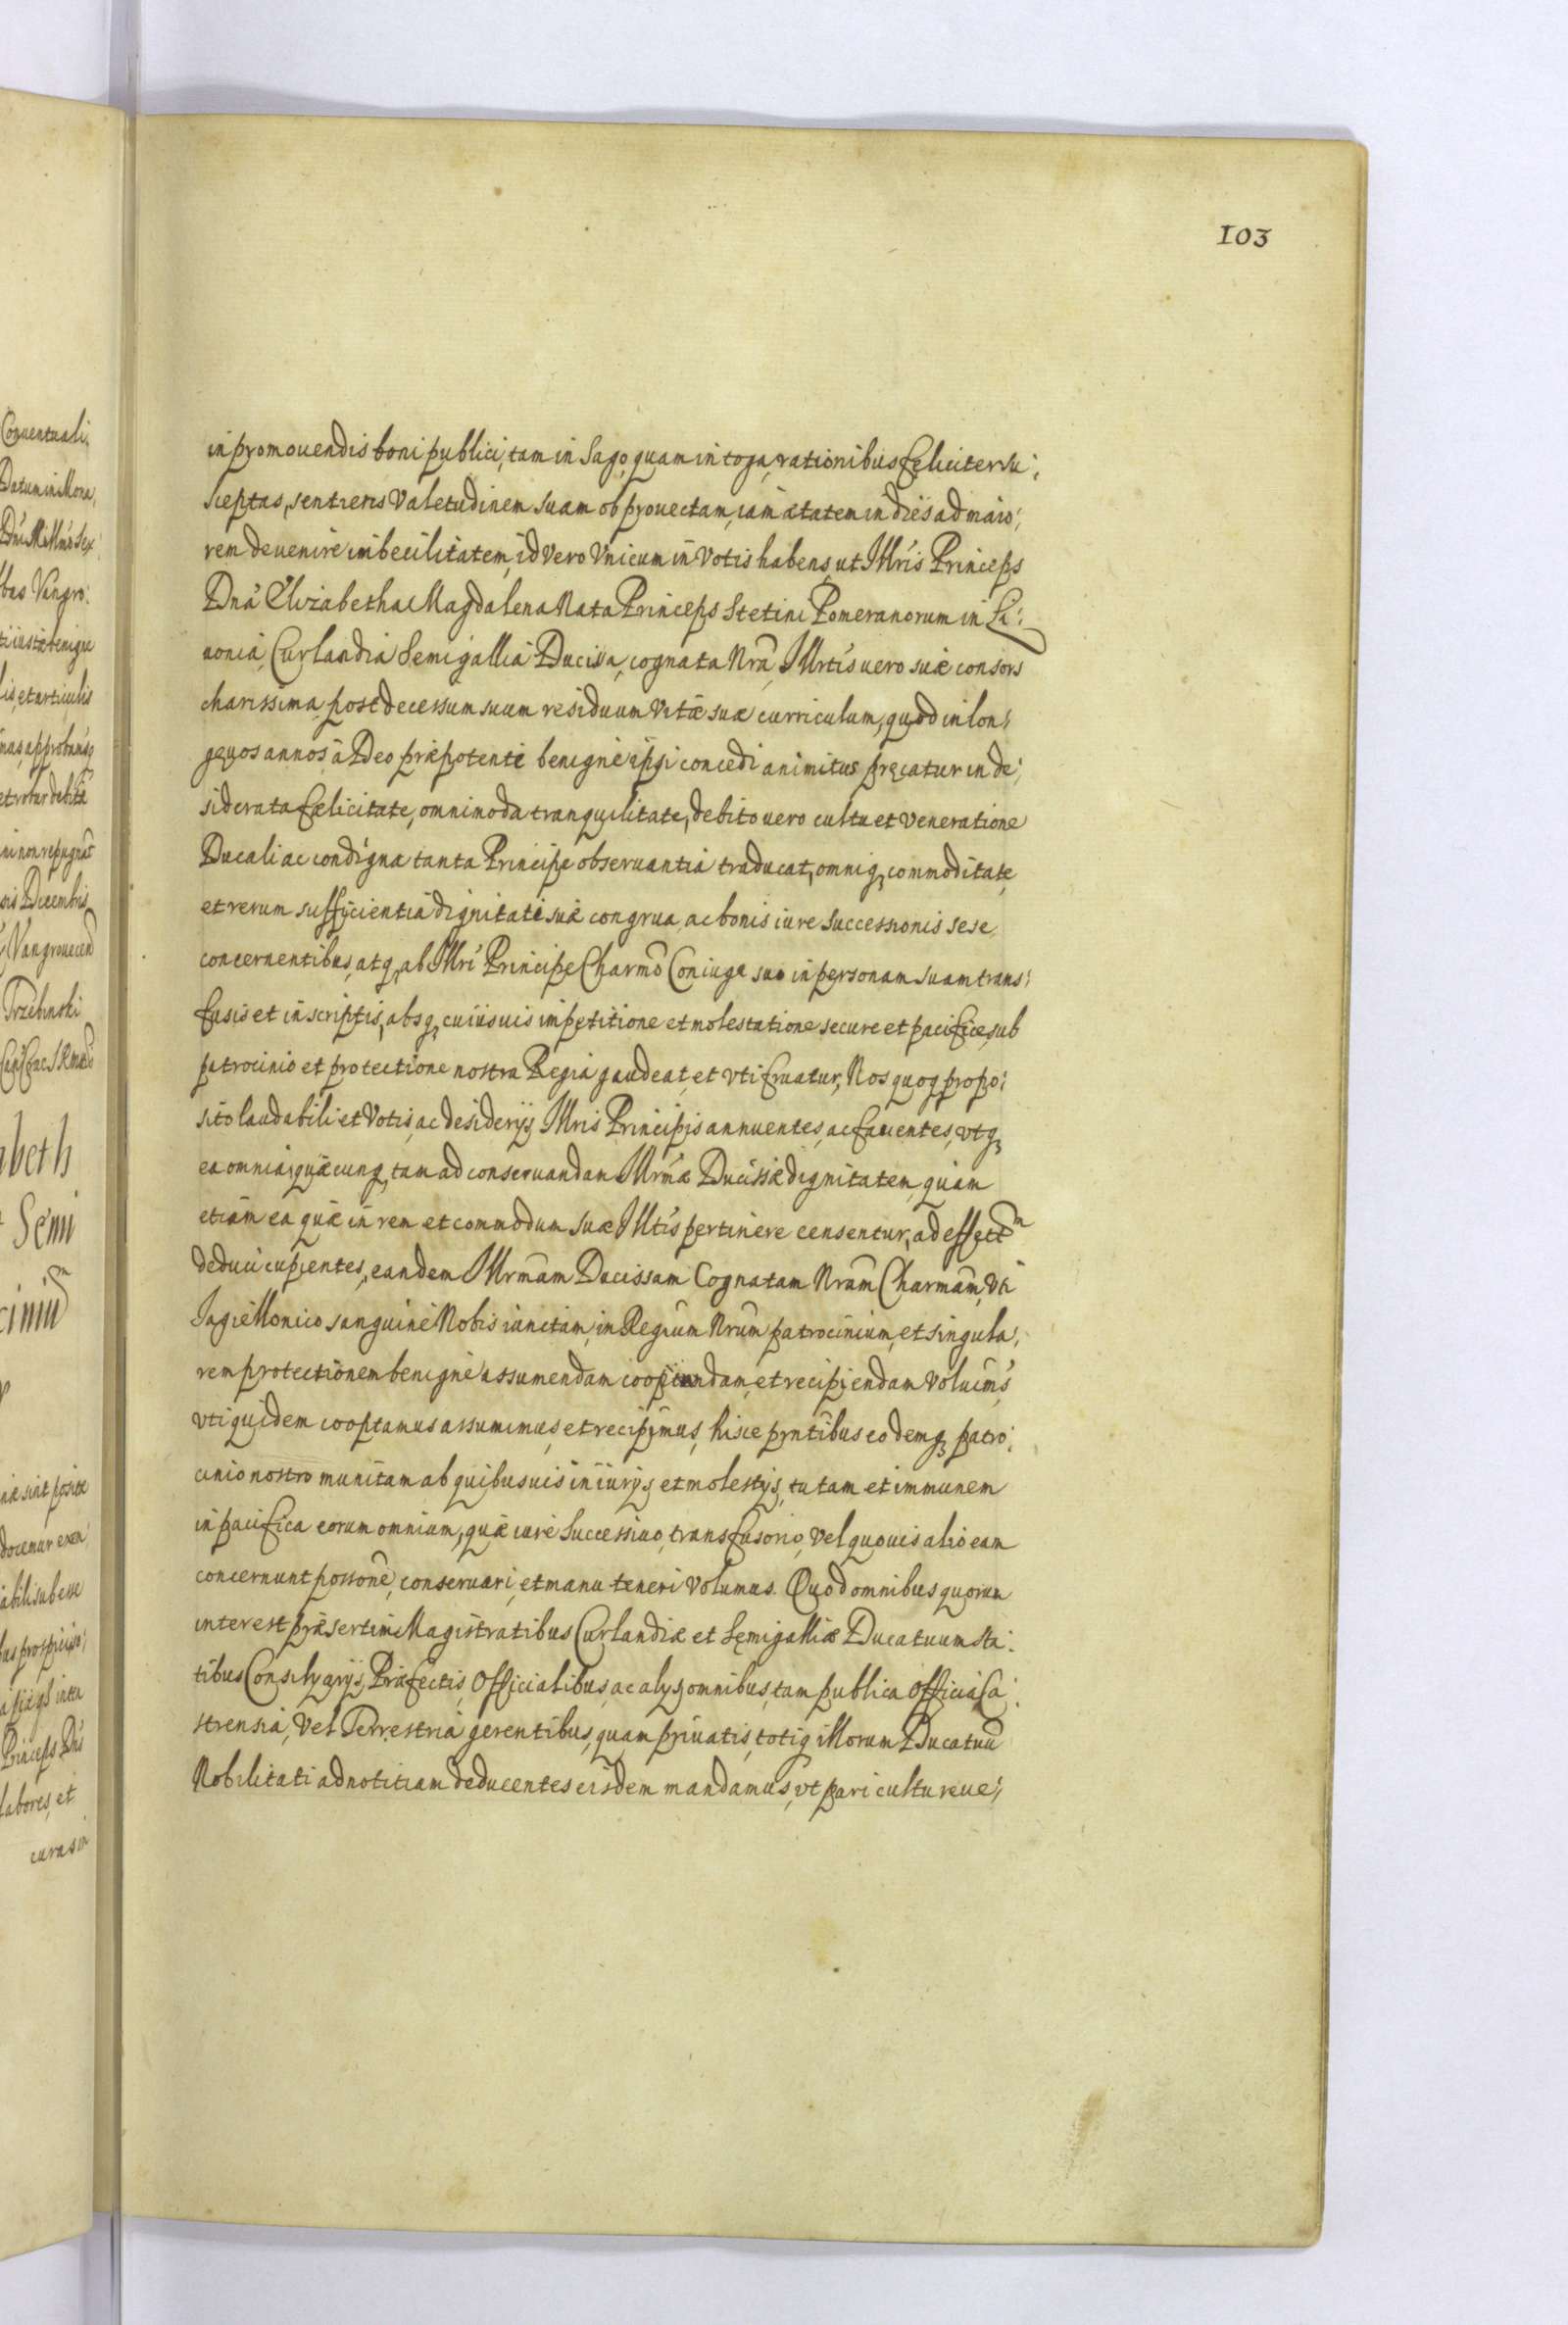 103
in promouendis boni publici, tam in Sago, quam in toga, rationibus feliciter su:
sceptas, sentiens Valetudinem suam ob prouectam, iam ætatem in dies ad maio:
rem deuenire imbecilitatem, id vero Vnicum in Votis habens, ut Illris Princeps
Dna Elizabetha Magdalena Nata Princeps Stetini Pomeranorum in Li:
uonia, Curlandia Semigallia Ducissa, cognata Nra, Illrtis uero suæ consors
charissima, post decessum suum residuum Vitæ suæ curriculum, quod in lon:
gæuos annos à Deo præpotente benigne ipsi concedi animitus precatur in de:
siderata fælicitate, omnimoda tranquilitate, debito uero cultu et Veneratione
Ducali ac condigna tanta Principe obseruantia traducat, omniq, commoditate,
et rerum suffycientia dignitati suæ congrua, ac bonis iure successionis sese
concernentibus, atq, ab Illri Principe Charmo Coniuge suo in personam suam trans:
fusis et inscriptis, absq, cuiusuis impetitione et molestatione secure et pacifice, sub
patrocinio et protectione nostra Regia gaudeat, et vti fruatur, Nos quoq propo:
sito laudabili et Votis, ac desiderijs Illris Principis annuentes, ac fauentes, vtq,
ea omnia, quæcunq, tam ad conseruandam Illrmæ Ducissæ dignitatem, quam
etiam ea quæ in rem et commodum suæ Illtis pertinere censentur, ad effectm
deduci cupientes, eandem Illrmam Ducissam Cognatam Nram Charmam, Vti
Jagiellonico sanguine Nobis iunctam, in Regium Nrum patrocinium, et singula:
rem protectionem benigne assumendam cooptandam, et recipiendam Voluims,
vti quidem cooptamus assumimus, et recipimus, hisce prntibus eodemq, patro:
cinio nostro munitam ab quibusuis iniurijs, et molestijs, tutam et immunem
in pacifica eorum omnium, quæ iure Successiuo, transfusorio, Vel quouis alio eam
concernunt possone, conseruari, et manu teneri Volumus. Quod omnibus quorum
interest præsertim Magistratibus Curlandiæ et Semigalliæ Ducatuum sta:
tibus Consilyarijs, Præfectis, Officialibus, ac alys, omnibus, tam publica officia Ca:
strensia, Vel Terrestria gerentibus, quam priuatis, totiq, illorum Ducatuu
Nobilitati ad notitiam deducentes eisdem mandamus, vt pari cultu reue:
Conuentuali,
Datum in Mona,
bas Vangro:
lis, et articulis
ni non repugnat
Trzebinski
abeth
Semi
Princeps
labores, et
curas in